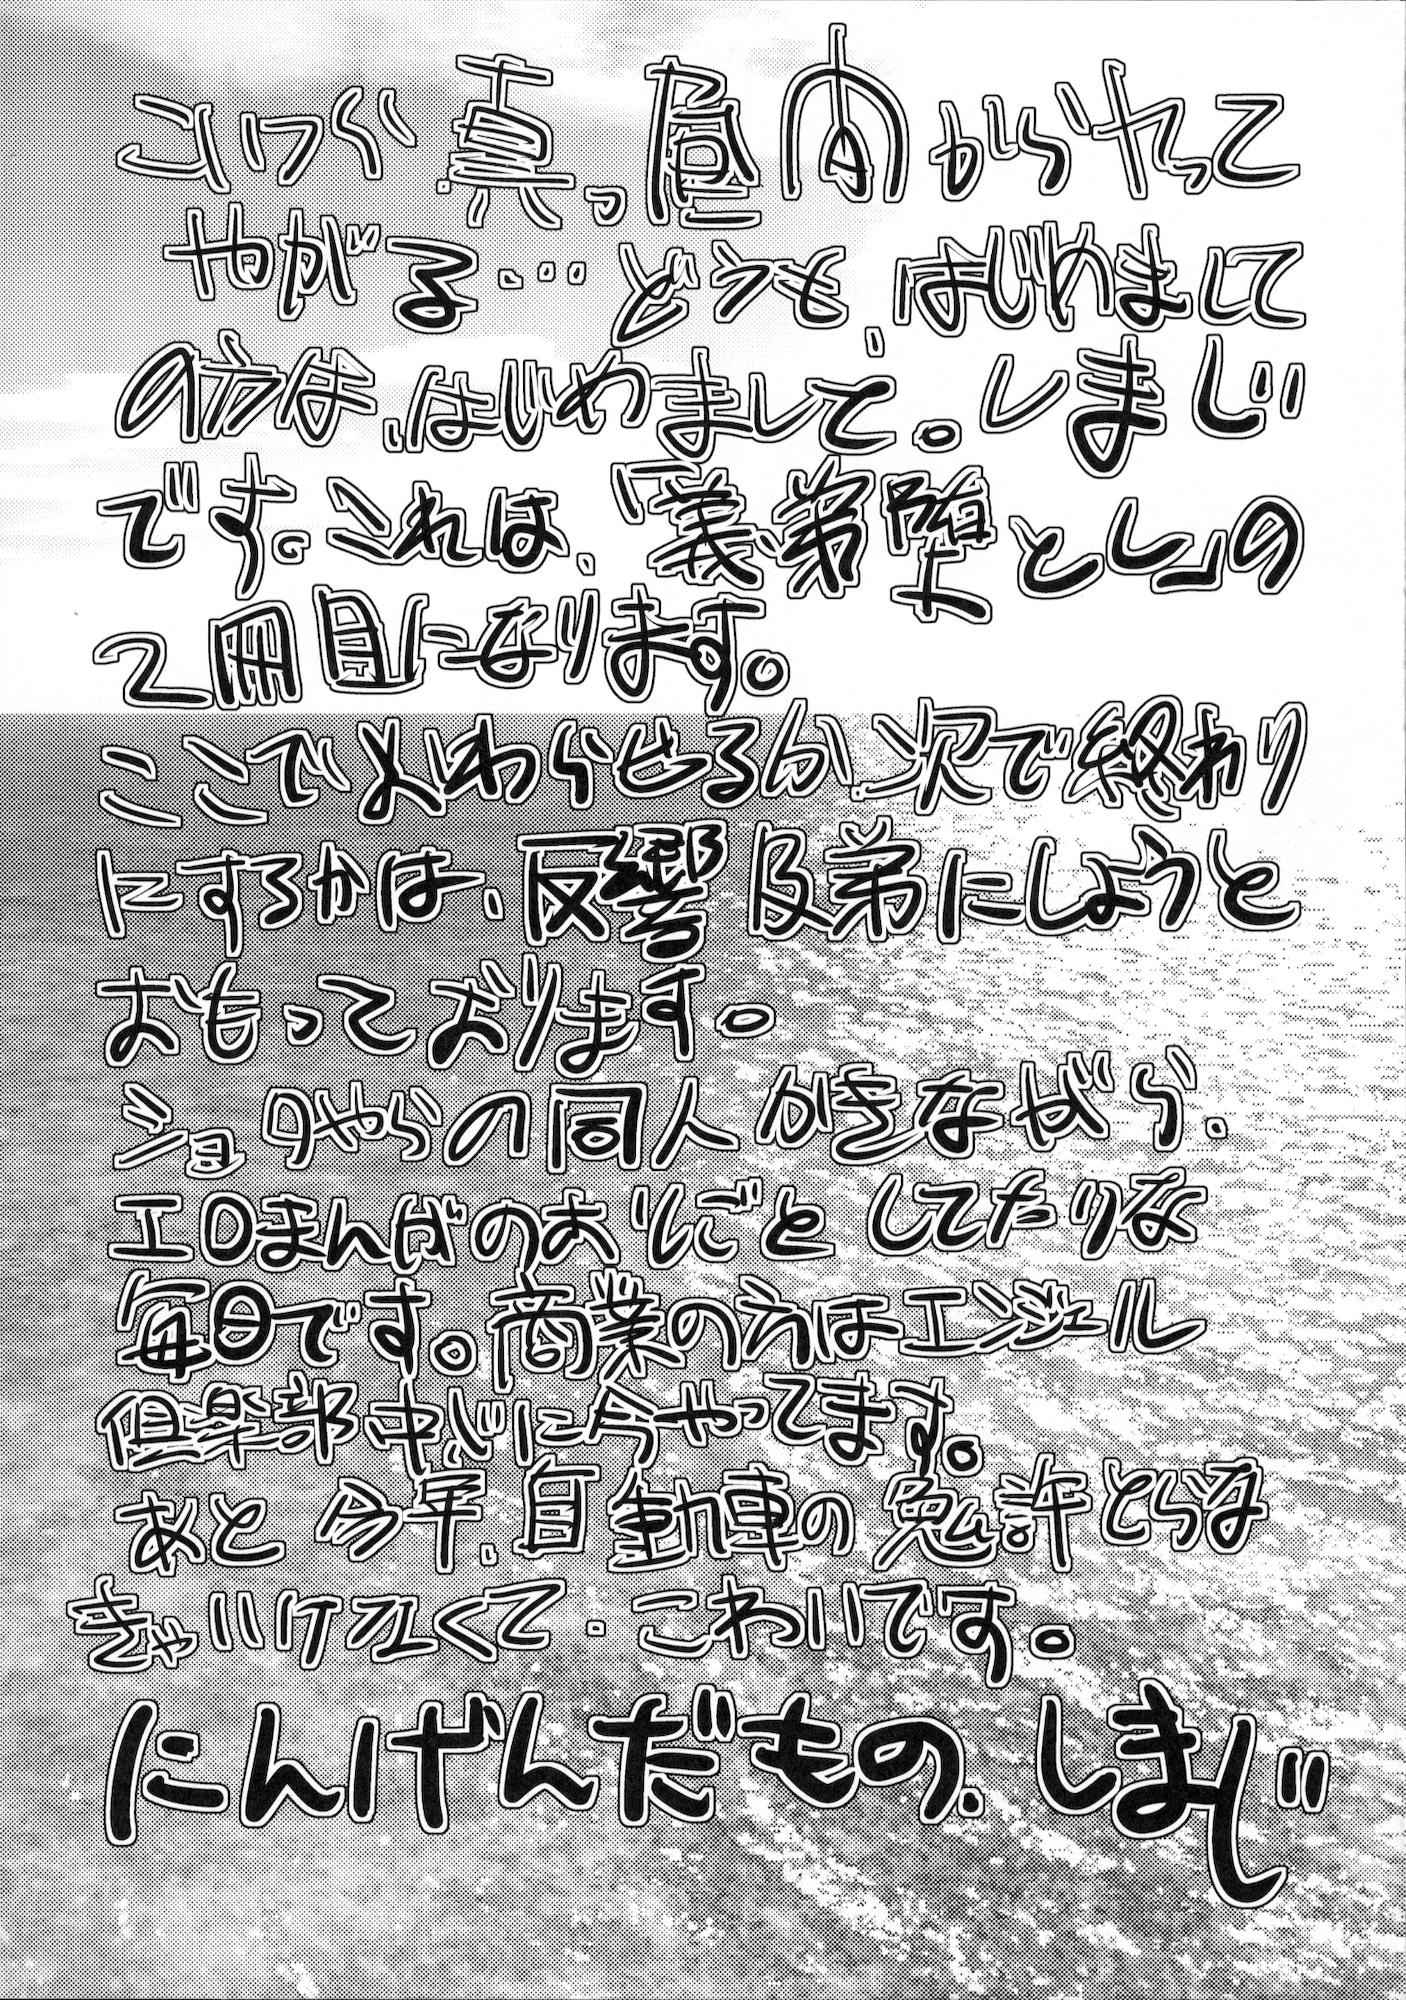 こいつら真っ昼間からヤって
やがる…どうも、はじめまして
の方は、はじめまして。しまじ
です。これは、「義弟堕とし」の
2冊目になります。
ここでいよいよわからせるか、次で終わり
にするかは、反響 反弟にしようと
おもっております。
ショタやらの同人かきながら、
エロまんがのおしごとしてたりな
毎日です。商業の方はエンジェル
倶楽部中心に今やってます。
あと今年、自動車の免許とらな
きゃいけなくて、こわいです。
にんげんだもの、しまじ